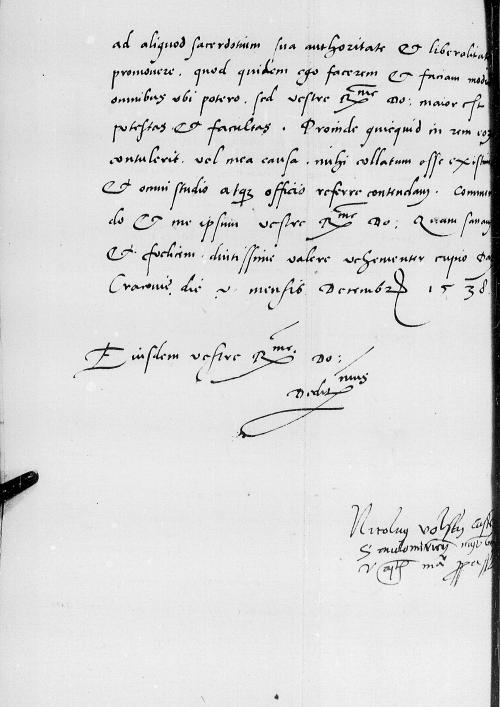 ad aliquod sacerdotium sua authoritate et liberalitat
promovere. quod quidem ego facerem et faciam modis
omnibus ubi potero. sed vestre Rme Do: maior est
potestas et facultas. Proinde quicquid in rem eor
contulerit. vel mea causa. mihi collatum esse existim
et omni studio atq; officio referre contendam. Commen
do et me ipsum vestre Rme Do: Quam sanam
et foelicem diutissime valere vehementer cupio Da
Cracovie die v mensis Decembr 1538
Eiusdem vestre Rme Do:
Deditmus
Nicolaus Volsky